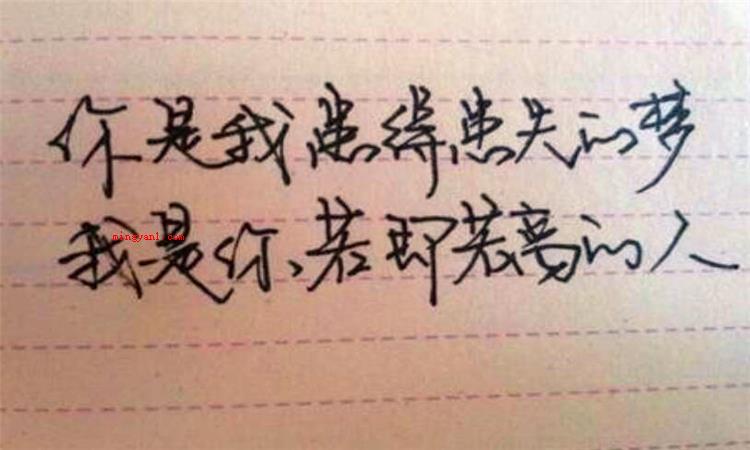 你是我患得患失的梦
我是你若即若离的人
mingyan1.com